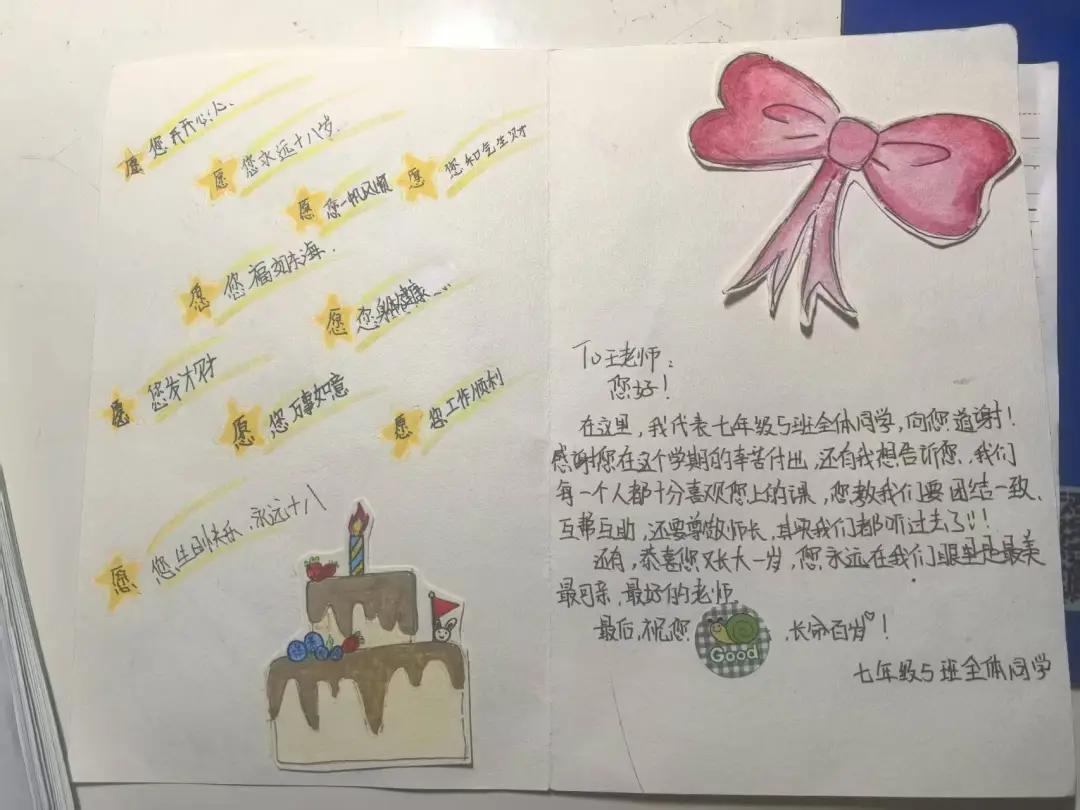 愿您开开心心、
愿您永远十八岁.
愿您和气生财
愿您一帆风顺
愿您福如东海.
愿您身体健康……
愿您发才财
愿您万事如意
愿您工作顺利
愿您生日快乐、永远十八
To王老师:
您好!
在这里,我代表七年级5班全体同学,向您道谢!
感谢您在这个学期的辛苦付出,还有我想告诉您,我们
每一个人都十分喜欢您上的课,您教我们要团结一致、
互帮互助,还要尊敬师长,其实我们都听进去了!!
还有,恭喜您又长大一岁,您永远在我们眼里是最美
最可亲、最好的老师
最后,祝您 Good ,长命百岁♡!
七年级5班全体同学